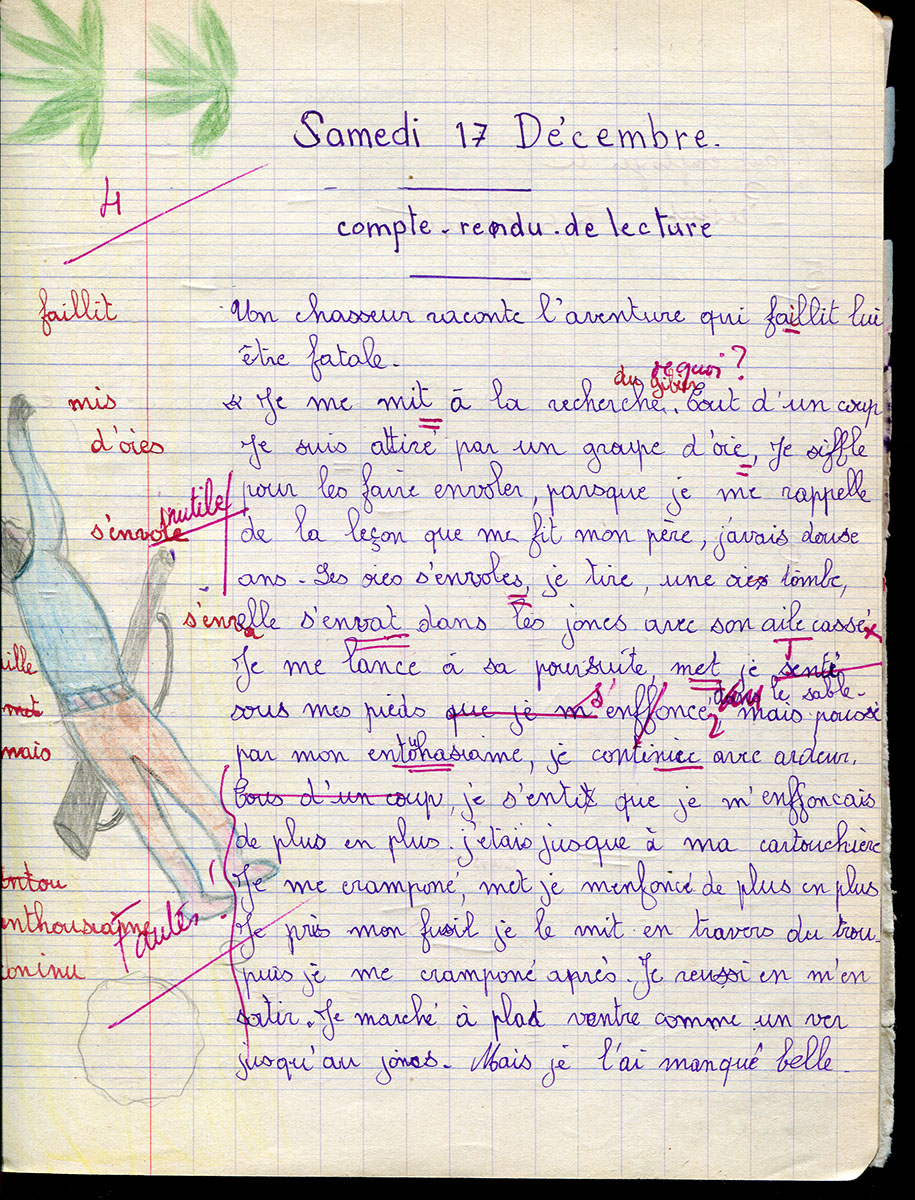 Samedi 17 Décembre.
4
compte-rendu de lecture
faillit
Un chasseur raconte l'aventure qui faillit lui
être fatale.
de quoi ?
du gibier
mis
Je me mit à la recherche. Tout d'un coup
d'oies
Je suis attiré par un groupe d'oie, Je siffle
inutile
pour les faire envoler, parsque je me rappelle
s'envole
de la leçon que me fit mon père, j'avais douse
ans. Les oies s'envoles, je tire, une oie tombe,
s'enva
elle s'envat dans les joncs avec son aile cassé
aille
Je me lance à sa poursuite, met je senté
met
dans le sable.
sous mes pieds que je m's'enffonce, mais poussé
mais
par mon entouhasiaime, je continiee avec ardeur.
Tous d'un coup, je s'entit que je m'enffoncais
de plus en plus. j'etais jusque à ma cartouchière
entou
Je me cramponé, met je m'enfoncé de plus en plus
enthousiasme
Fautes !
Je pris mon fusil je le mit en travers du trou.
coninu
puis je me cramponé après. Je reussi en m'en
sortir. Je marché à plat ventre comme un ver
jusqu'au joncs. Mais je l'ai manqué belle.